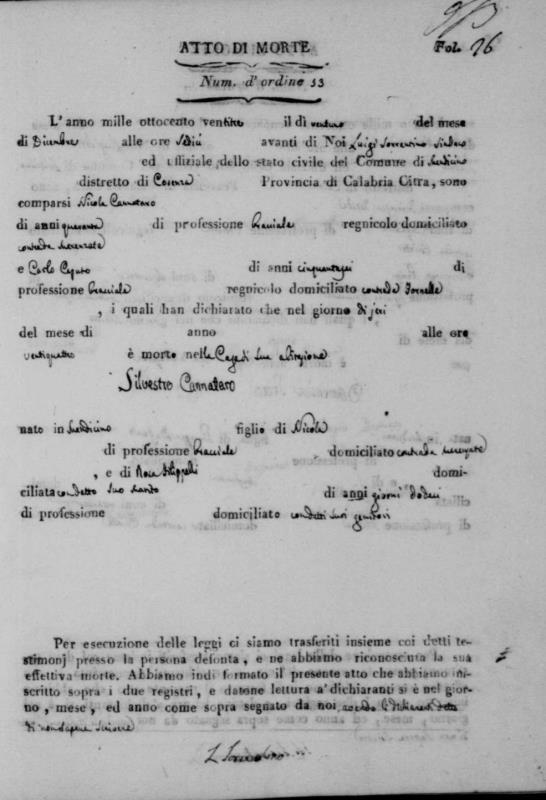 ATTO DI MORTE
Fol. 26
Num. d'ordine 53
L'anno mille ottocento ventitre il dì ventuno del mese
di Dicembre alle ore Sedici avanti di Noi Luigi Sorrentino Sindaco
ed Uffiziale dello stato civile del Comune di
distretto di Cosenza Provincia di Calabria Citra, sono
comparsi Nicola Cannataro
di anni quaranta di professione bracciale regnicolo domiciliato
contrada
e Carlo Caputo di anni cinquantasei di
professione bracciale regnicolo domiciliato contrada
, i quali han dichiarato che nel giorno di jeri
del mese di anno alle ore
ventiquattro è morto nella Casa di Sua abitazione
Silvestro Cannataro
nato in figlio di Nicola
di professione bracciale domiciliato contrada
, e di Rosa Filippelli domi-
ciliata con detto suo marito di anni giorni dodeci
di professione domiciliato con detti suoi genitori
Per esecuzione delle leggi ci siamo trasferiti insieme coi detti te-
stimonj presso la persona defonta, e ne abbiamo riconosciuta la sua
effettiva morte. Abbiamo indi formato il presente atto che abbiamo in-
scritto sopra i due registri, e datone lettura a' dichiaranti si è nel gior-
no, mese, ed anno come sopra segnato da noi, avendo i dichiaranti detto
di non sapere scrivere